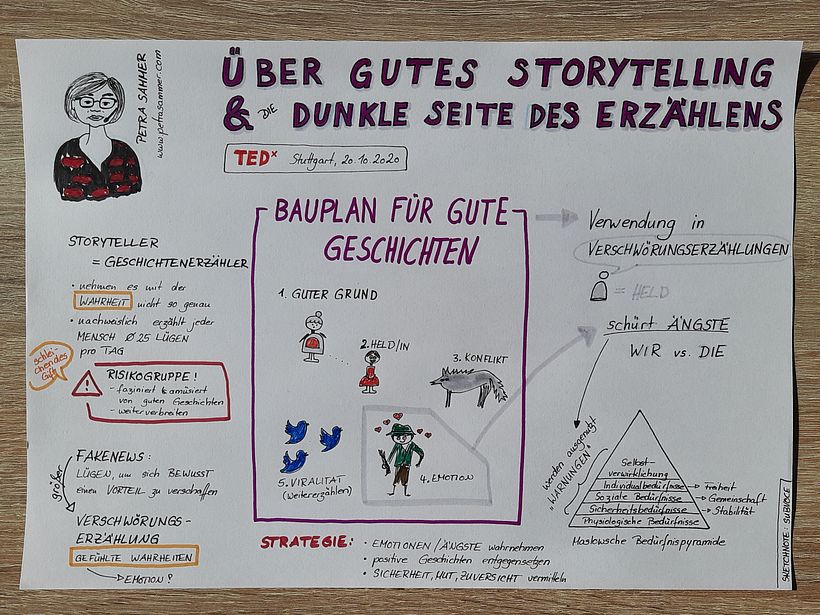 PETRA SAMMER
www.petrasammer.com
ÜBER GUTES STORYTELLING
& DIE DUNKLE SEITE DES ERZÄHLENS
TEDx Stuttgart, 20.10.2020
STORYTELLER
= GESCHICHTENERZÄHLER
• nehmen es mit der
WAHRHEIT nicht so genau
• nachweislich erzählt jeder
MENSCH Ø 25 LÜGEN
pro TAG
schlei-
chendes
Gift
RISIKOGRUPPE!
- fasziniert & amüsiert
von guten Geschichten
- weiterverbreiten
FAKENEWS:
LÜGEN, um sich BEWUSST
einen VORTEIL zu verschaffen
größer
VERSCHWÖRUNGS-
ERZÄHLUNG
GEFÜHLTE WAHRHEITEN
EMOTION?
BAUPLAN FÜR GUTE
GESCHICHTEN
1. GUTER GRUND
2. HELD/IN
3. KONFLIKT
4. EMOTION
5. VIRALITÄT
(weitererzählen)
STRATEGIE:
• EMOTIONEN/ÄNGSTE wahrnehmen
• positive Geschichten entgegensetzen
• SICHERHEIT, MUT, ZUVERSICHT vermitteln
Verwendung in
VERSCHWÖRUNGSERZÄHLUNGEN
= HELD
schürt ÄNGSTE
WIR vs. DIE
werden ausgenutzt
"WARNUNGEN"
Selbst-
verwirklichung
Individualbedürfnisse → Freiheit
Soziale Bedürfnisse → Gemeinschaft
Sicherheitsbedürfnisse → Stabilität
Physiologische Bedürfnisse
Maslowsche Bedürfnispyramide